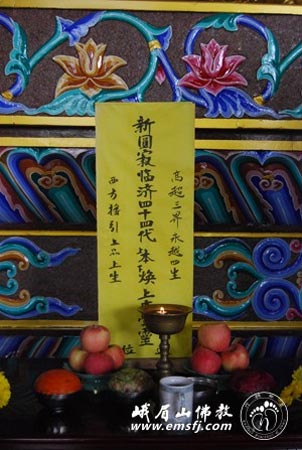 高超三界 永越四生
新圓寂临济四十四代本焕上靈位
西方接引 上品上生
峨眉山佛教
www.emsfj.com